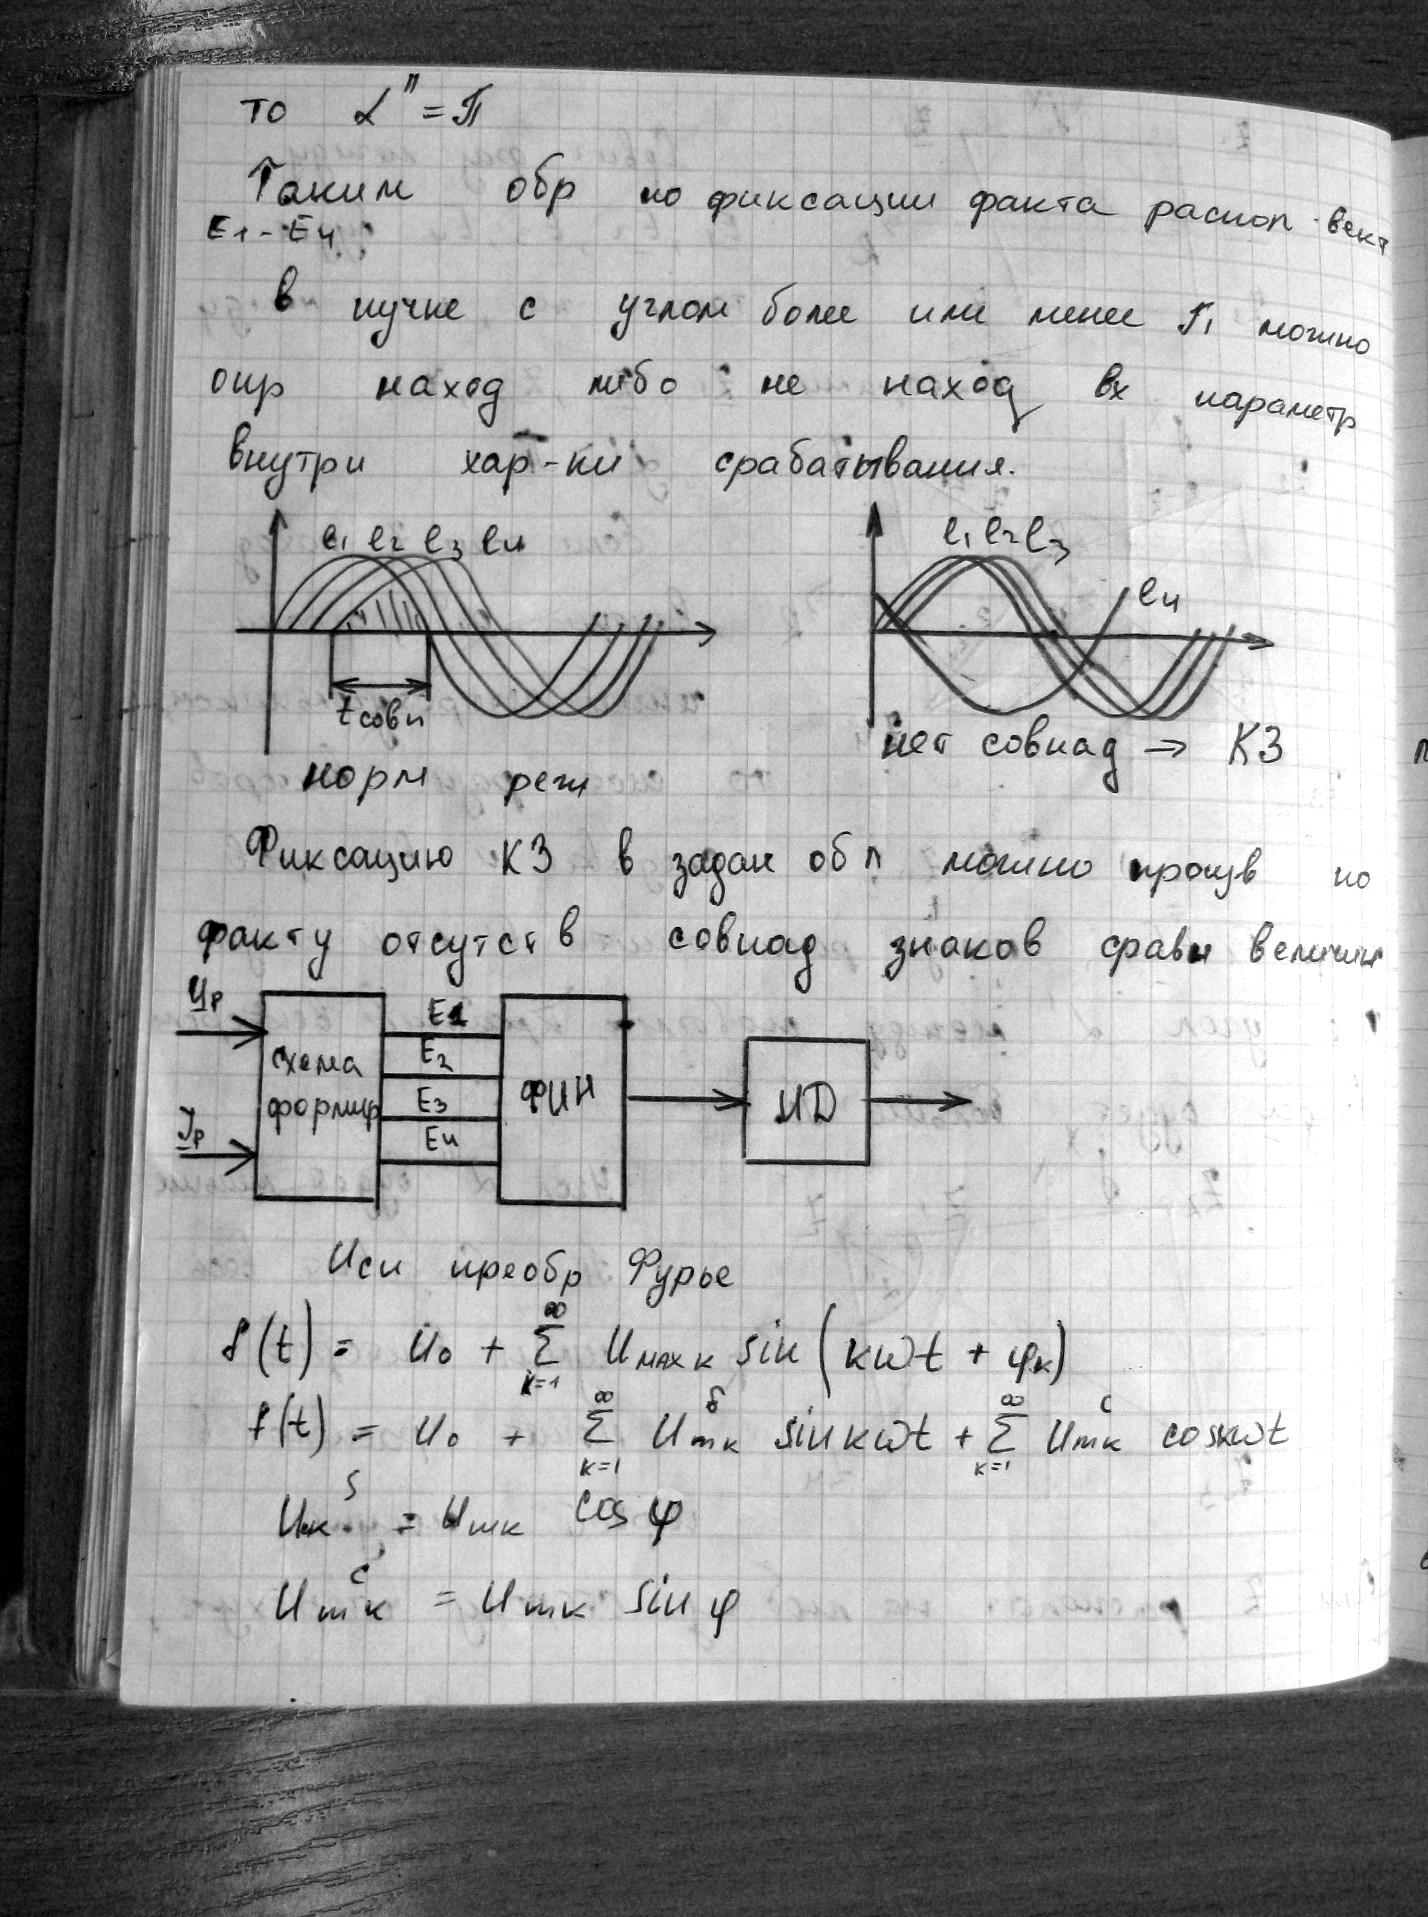 то α" = π
Таким обр по фиксации факта распол вект
E1 - E4
в пучке с углом более или менее π можно
опр наход либо не наход вх параметр
внутри хар-ки срабатывания.
e1 e2 e3 e4
e1 e2 e3
e4
tсовп
нет совпад → КЗ
норм реж
Фиксацию КЗ в задан обл можно произв по
факту отсутств совпад знаков сравн величин
Uр
E1
E2
схема
формир
E3
ФИН
ИД
Iр
E4
Исп преобр Фурье
f(t) = U₀ + ∞ Σ k=1 Umax k sin (kωt + φk)
f(t) = U₀ + ∞ Σ k=1 Umk^S sin kωt + ∞ Σ k=1 Umk^C cos kωt
Umk^S = Umk cos φ
Umk^C = Umk sin φ